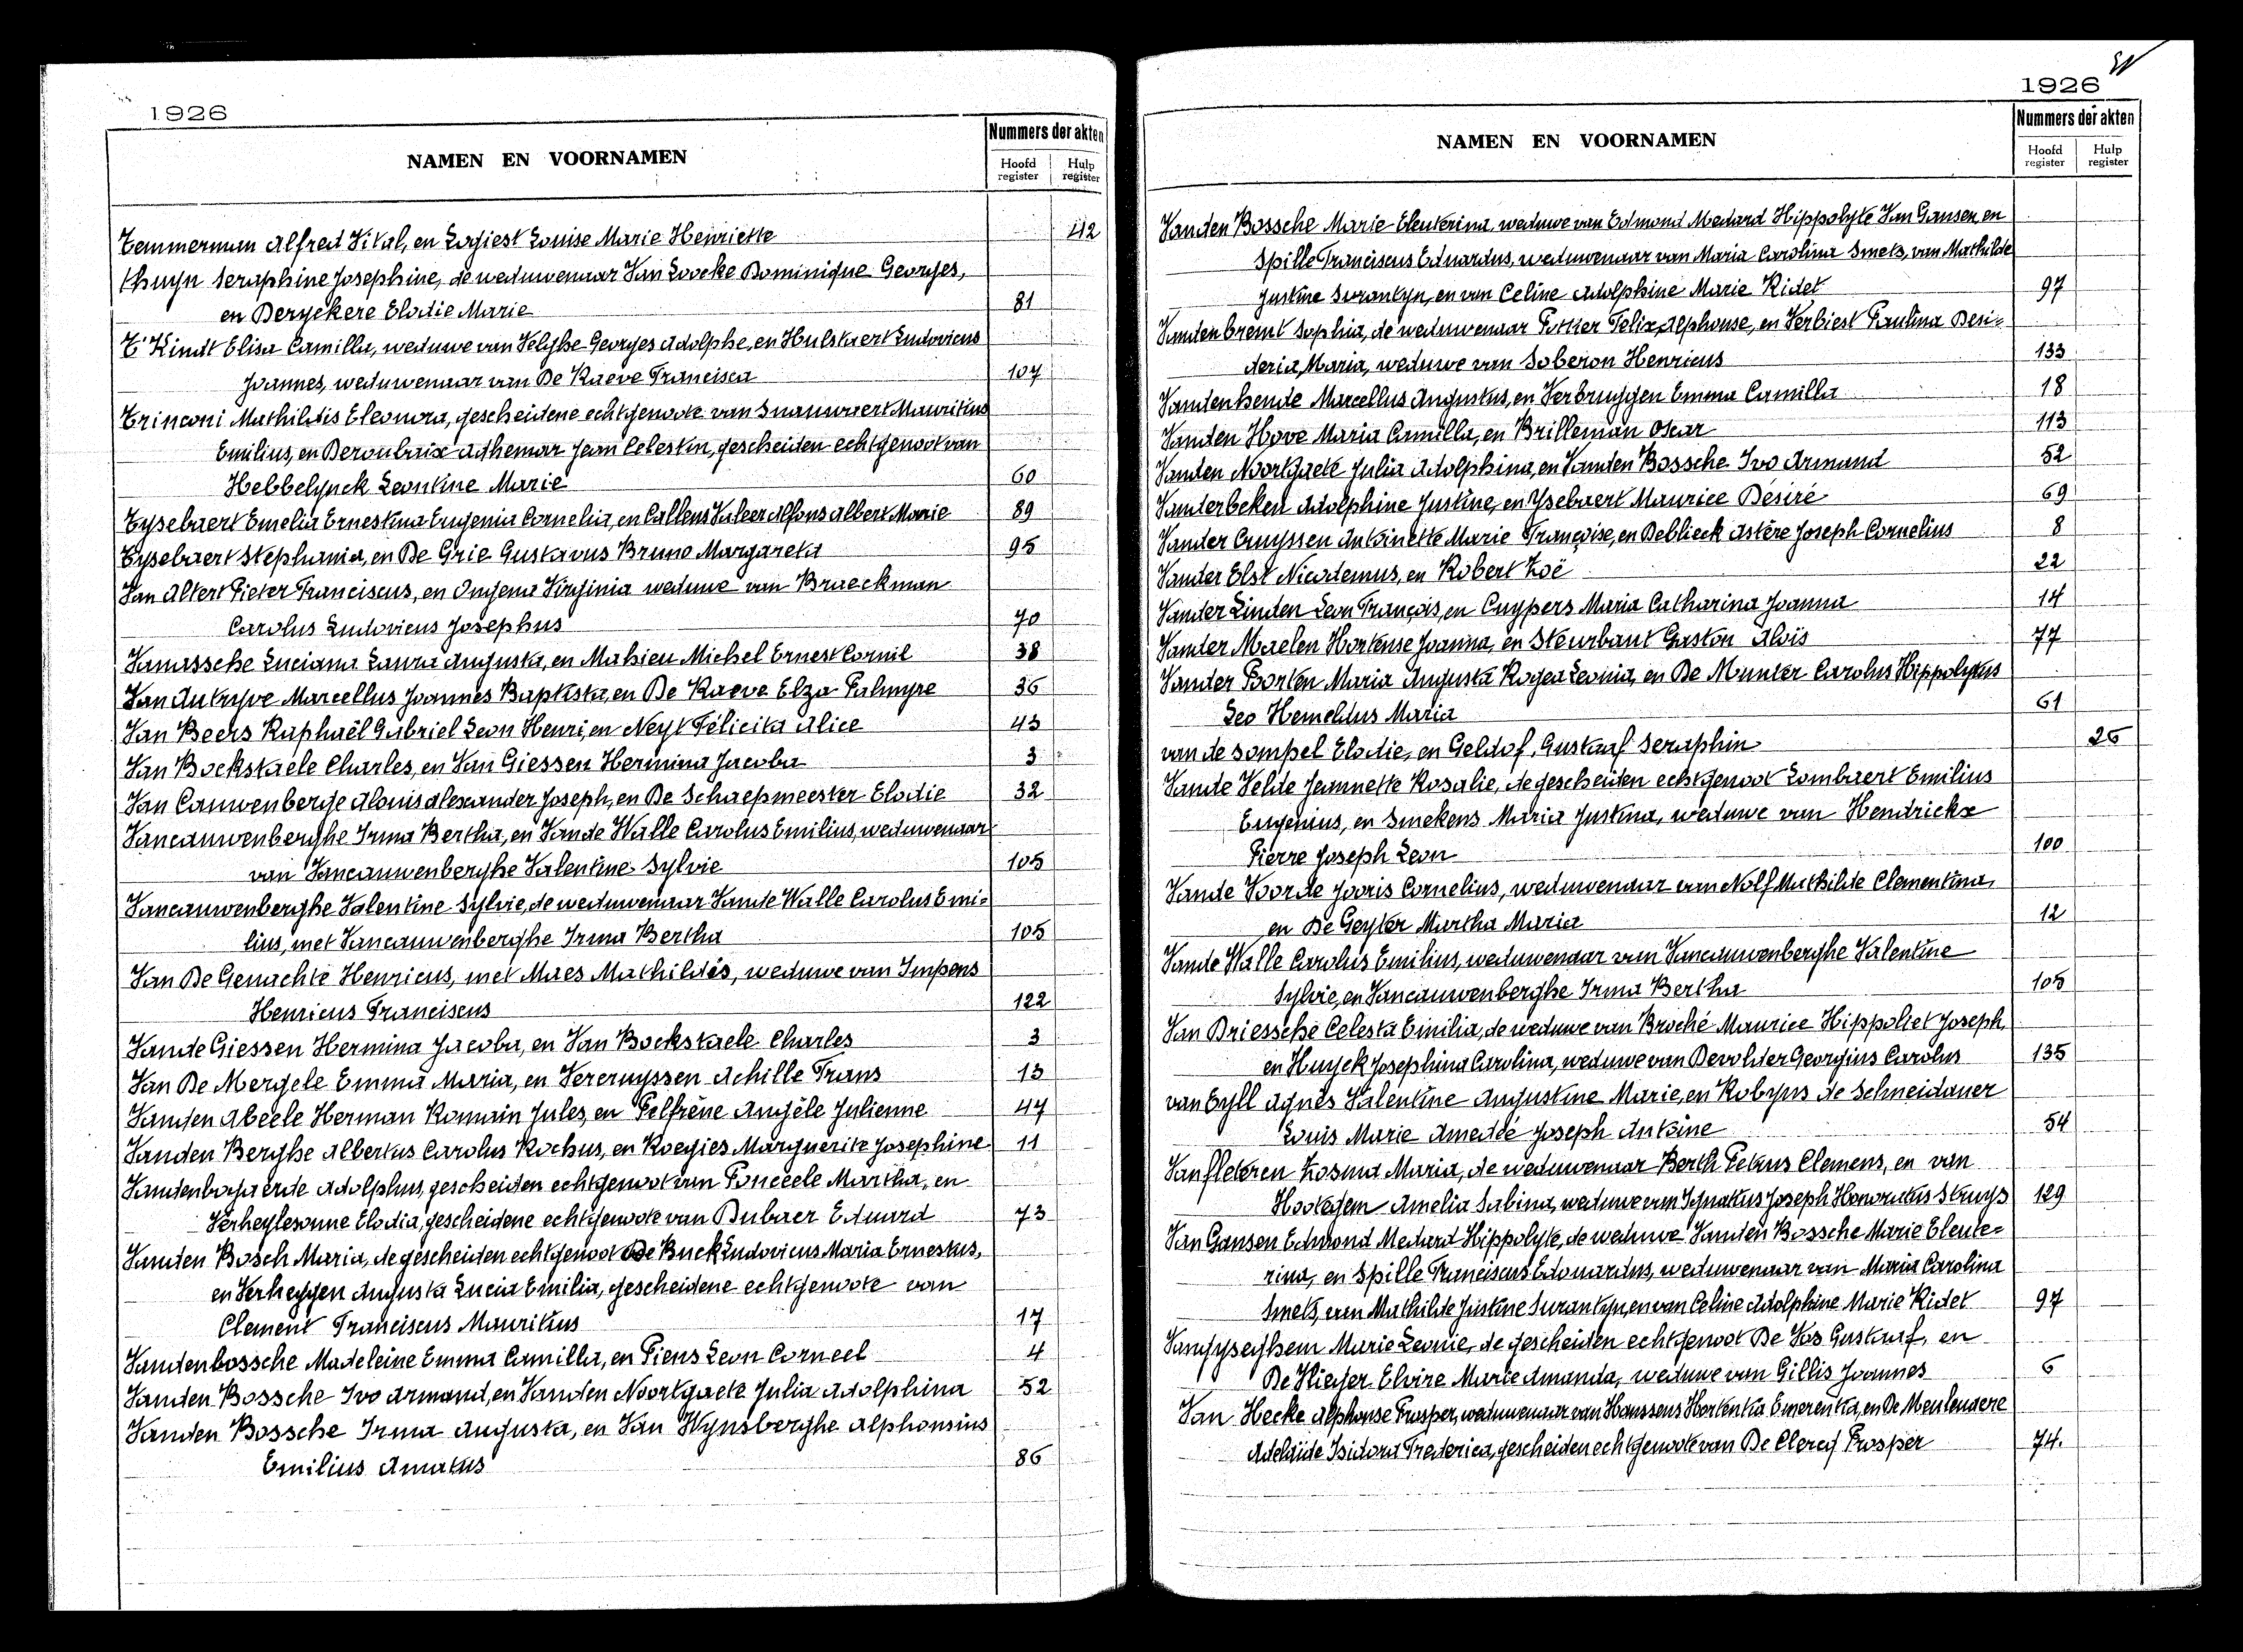 1926
NAMEN EN VOORNAMEN
Nummers der akten
Hoofd register
Hulp register
Temmerman Alfred Vital, en Logiest Louise Marie Henriette 42
thuyn Seraphine Josephine, de weduwenaar Van Loocke Dominique Georges,
en Deryckere Elodie Marie 81
T'Kindt Elisa Camilla, weduwe van Velghe Georges Adolphe, en Hulstaert Ludovicus
Joannes, weduwenaar van De Raeve Francisca 107
Trinconi Mathildis Eleonora, gescheidene echtgenoote van Snauwaert Mauritius
Emilius, en Deroubaix Adhemar Jean Celestin, gescheiden echtgenoot van
Hebbelynck Leontine Marie 60
Tysebaert Emelia Ernestina Eugenia Cornelia, en Callens Valeer Alfons Albert Marie 89
Tysebaert Stephania, en De Grie Gustavus Bruno Margareta 95
Van Altert Pieter Franciscus, en Ongena Virginia weduwe van Braeckman
Carolus Ludovicus Josephus 70
Vanassche Luciana Laura Augusta, en Mahieu Michel Ernest Cornil 38
Van Autryve Marcellus Joannes Baptista, en De Raeve Elza Palmyre 36
Van Beers Raphaël Gabriel Leon Henri, en Neyt Félicita Alice 43
Van Bockstaele Charles, en Van Giessen Hermina Jacoba 3
Van Cauwenberge Alouis Alexander Joseph, en De Schaepmeester Elodie 32
Vancauwenberghe Irma Bertha, en Vande Walle Carolus Emilius, weduwenaar
van Vancauwenberghe Valentine Sylvie 105
Vancauwenberghe Valentine Sylvie, de weduwenaar Vande Walle Carolus Emi=
lius, met Vancauwenberghe Irma Bertha 105
Van De Genachte Henricus, met Maes Mathildis, weduwe van Impens
Henricus Franciscus 122
Vande Giessen Hermina Jacoba, en Van Bockstaele Charles 3
Van De Mergele Emma Maria, en Vercruyssen Achille Frans 13
Vanden Abeele Herman Romain Jules, en Pelfrène Angèle Julienne 47
Vanden Berghe Albertus Carolus Rochus, en Roegies Marguerite Josephine 11
Vandenbogaerde Adolphus, gescheiden echtgenoot van Ponceele Martha, en
Verheylesonne Elodia, gescheidene echtgenoote van Dubaer Eduard 73
Vanden Bosch Maria, de gescheiden echtgenoot De Buck Ludovicus Maria Ernestus,
en Verheggen Augusta Lucia Emilia, gescheidene echtgenoote van
Clement Franciscus Mauritius 17
Vandenbossche Madeleine Emma Camilla, en Piens Leon Corneel 4
Vanden Bossche Ivo Armand, en Vanden Noortgaete Julia Adolphina 52
Vanden Bossche Irma Augusta, en Van Wynsberghe Alphonsius
Emilius Amatus 86
1926
NAMEN EN VOORNAMEN
Nummers der akten
Hoofd register
Hulp register
Vanden Bossche Marie Eleuterina weduwe van Edmond Medard Hippolyte Van Gansen, en
Spille Franciscus Eduardus, weduwenaar van Maria Carolina Smets, van Mathilde
Justine Surantyn, en van Celine Adolphine Marie Ridet 97
Vandenbremt Sophia, de weduwenaar Pottier Felix, Alphonse, en Verbiest Paulina Desi=
deria, Maria, weduwe van Soberon Henricus 133
Vandenhende Marcellus Augustus, en Verbruggen Emma Camilla 18
Vanden Hove Maria Camilla, en Brilleman Oscar 113
Vanden Noortgaete Julia Adolphina, en Vanden Bossche Ivo Armand 52
Vanderbeken Adolphine Justine, en Ysebaert Maurice Désiré 69
Vander Cruyssen Antoinette Marie Françoise, en Deblieck Astère Joseph Cornelius 8
Vander Elst Nicodemus, en Robert Zoë 22
Vander Linden Leon François, en Cuypers Maria Catharina Joanna 14
Vander Maelen Hortense Joanna, en Steurbaut Gaston Aloïs 77
Vander Poorten Maria Augusta Rogea Leonia, en De Munter Carolus Hippolytus
Leo Hemeldus Maria 61
van de sompel Elodie, en Geldof, Gustaaf Seraphin 26
Vande Velde Jeannette Rosalie, de gescheiden echtgenoot Lombaert Emilius
Eugenius, en Smekens Maria Justina, weduwe van Hendrickx
Pierre Joseph Leon 100
Vande Voorde Jooris Cornelius, weduwenaar van Nolf Mathilde Clementina,
en De Geyter Martha Maria 12
Vande Walle Carolus Emilius, weduwenaar van Vancauwenberghe Valentine
Sylvie, en Vancauwenberghe Irma Bertha 105
Van Driessche Celesta Emilia, de weduwe van Broché Maurice Hippoliet Joseph,
en Huyck Josephina Carolina, weduwe van Devolder Georgius Carolus 135
van Eyll Agnès Valentine Augustine Marie, en Robyns de Schneidauer
Louis Marie Amedée Joseph Antoine 54
Vanfleteren Zosima Maria, de weduwenaar Berth Petrus Clemens, en van
Hootegem Amelia Sabina, weduwe van Ignatius Joseph Honoratus Struys 129
Van Gansen Edmond Medard Hippolyte, de weduwe Vanden Bossche Marie Eleute=
rina, en Spille Franciscus Edouardus, weduwenaar van Maria Carolina
Smets, van Mathilde Justine Surantyn, en van Celine Adolphine Marie Ridet 97
Vangyseghem Marie Leonie, de gescheiden echtgenoot De Vos Gustaaf, en
De Vlieger Elvire Marie Amanda, weduwe van Gillis Joannes 6
Van Hecke Alphonse Prosper, weduwenaar van Haussens Hortentia Emerentia, en De Meulenaere
Adelaïde Isidora Frederica, gescheiden echtgenoote van De Clercq Prosper 74.